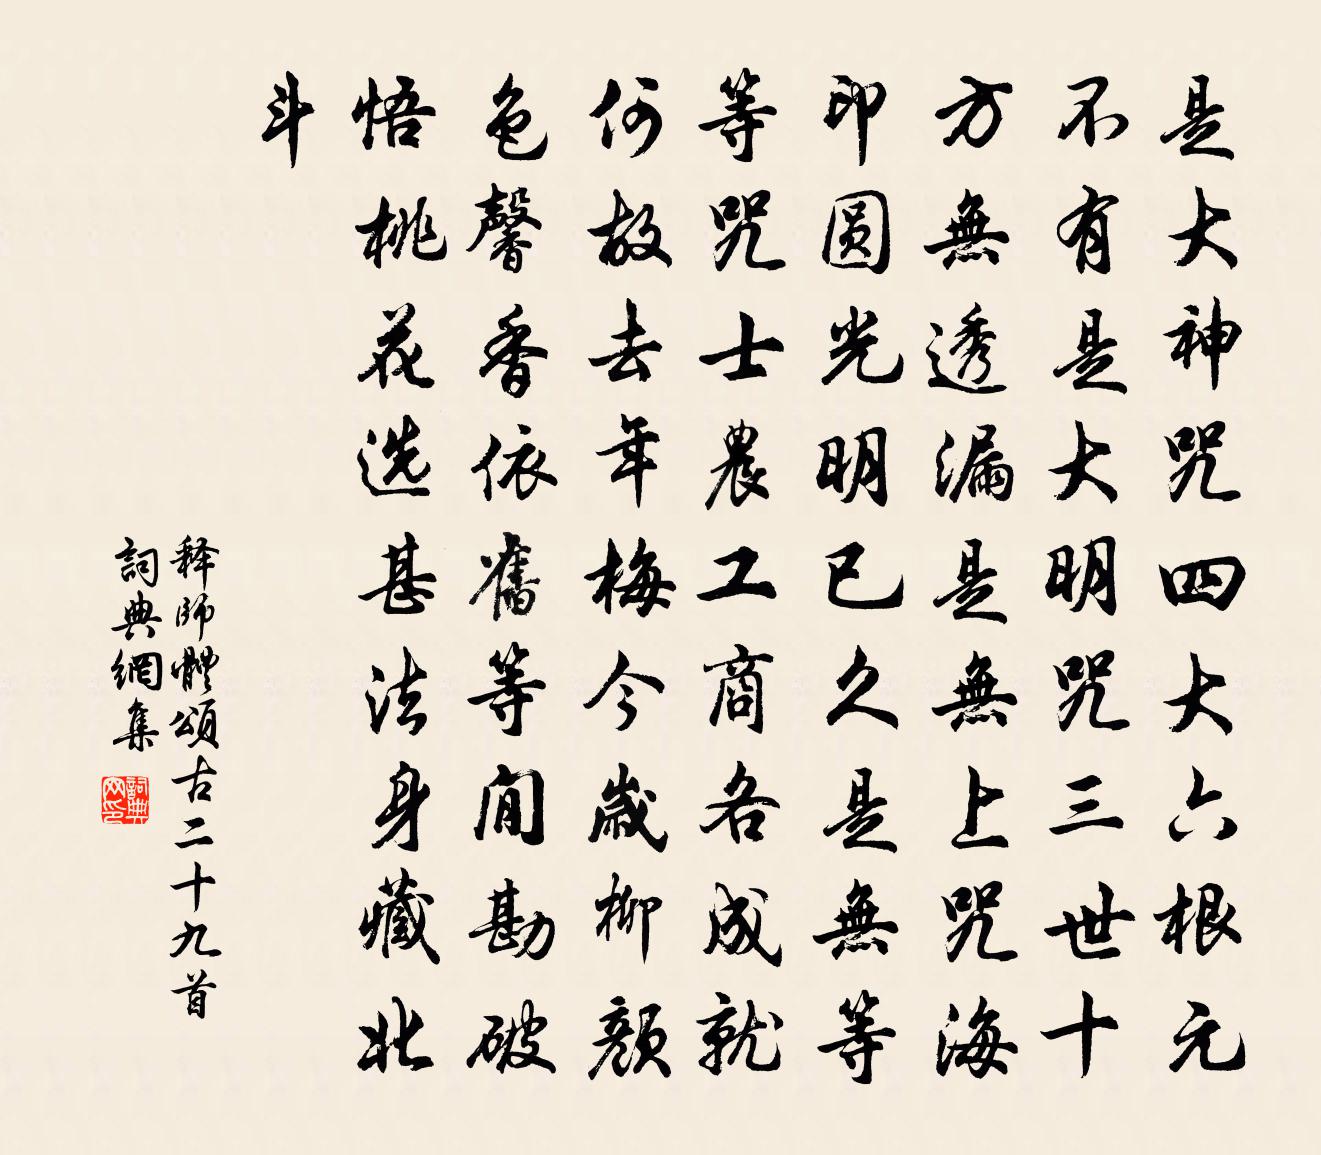 是大神咒四大六根元
不有是大明咒三世十
方無透漏是無上咒海
印圆光明已久是無等
等咒士農工商各成就
何故去年梅今歲柳顏
色馨香依舊等閒勘破
悟桃花选甚法身藏北
斗
释師體頌古二十九首
詞典網集
詞典网印